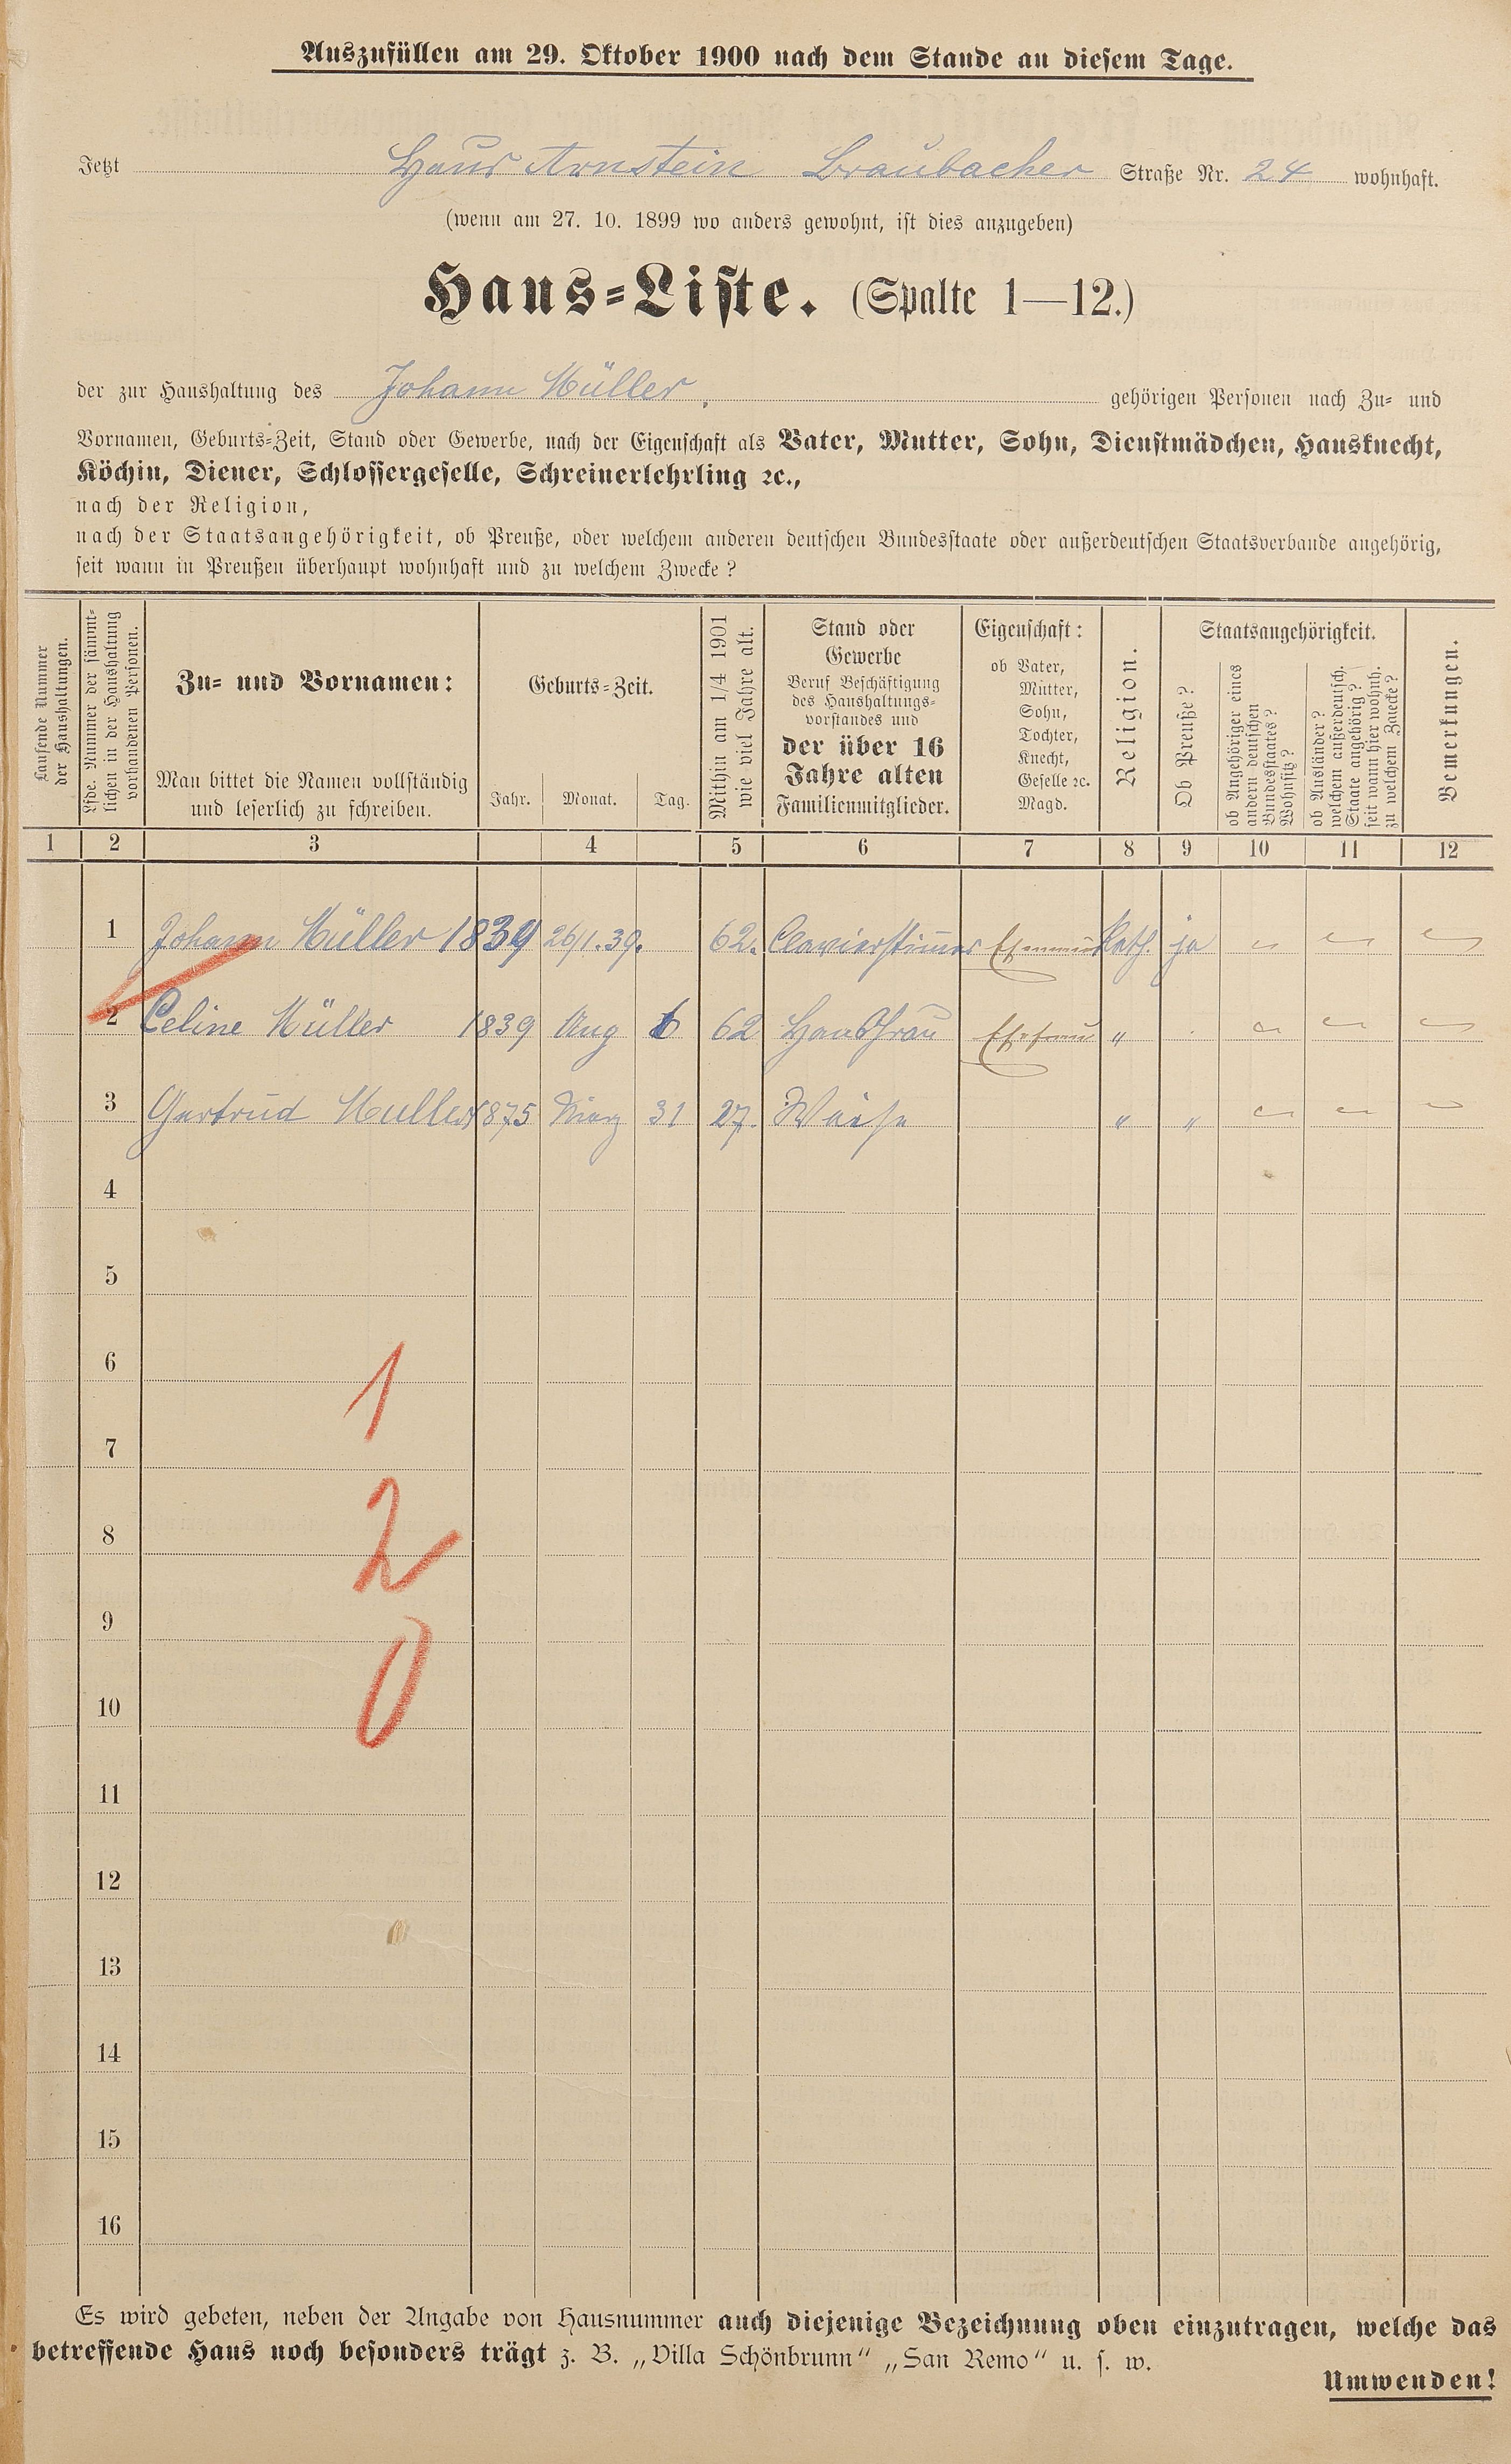 Auszufüllen am 29. Oktober 1900 nach dem Stande an diesem Tage.
Jetzt Haus Arnstein Braubacher Straße Nr. 24 wohnhaft.
(wenn am 27. 10. 1899 wo anders gewohnt, ist dies anzugeben)
Haus-Liste. (Spalte 1—12.)
der zur Haushaltung des Johann Müller. gehörigen Personen nach Zu- und
Vornamen, Geburts-Zeit, Stand oder Gewerbe, nach der Eigenschaft als Vater, Mutter, Sohn, Dienstmädchen, Hausknecht,
Köchin, Diener, Schlossergeselle, Schreinerlehrling ꝛc.,
nach der Religion,
nach der Staatsangehörigkeit, ob Preuße, oder welchem anderen deutschen Bundesstaate oder außerdeutschen Staatsverbande angehörig,
seit wann in Preußen überhaupt wohnhaft und zu welchem Zwecke?
Laufende Nummer
der Haushaltungen.
Lfde. Nummer der sämmt-
lichen in der Haushaltung
vorhandenen Personen.
Zu- und Vornamen:
Man bittet die Namen vollständig
und leserlich zu schreiben.
Geburts-Zeit.
Jahr. Monat. Tag.
Mithin am 1/4 1901
wie viel Jahre alt.
Stand oder
Gewerbe
Beruf Beschäftigung
des Haushaltungs-
vorstandes und
der über 16
Jahre alten
Familienmitglieder.
Eigenschaft:
ob Vater,
Mutter,
Sohn,
Tochter,
Knecht,
Geselle ꝛc.
Magd.
Religion.
Staatsangehörigkeit.
Ob Preuße?
ob Angehöriger eines
andern deutschen
Bundesstaates?
Wohnsitz?
ob Ausländer?
welchem außerdeutsch.
Staate angehörig?
seit wann hier wohnh.
zu welchem Zwecke?
Bemerkungen.
1 2 3 4 5 6 7 8 9 10 11 12
1 Johann Müller 1839 26/1.39. 62. Clavierstimmer Ehemann Kath. ja
2 Celine Müller 1839 Aug 6 62 Hausfrau Ehefrau "
3 Gertrud Muller 1875 März 31 27. Waise " "
4
5
6
1
7
2
8
9
0
10
11
12
13
14
15
16
Es wird gebeten, neben der Angabe von Hausnummer auch diejenige Bezeichnung oben einzutragen, welche das
betreffende Haus noch besonders trägt z. B. „Villa Schönbrunn" „San Remo" u. s. w.
Umwenden!